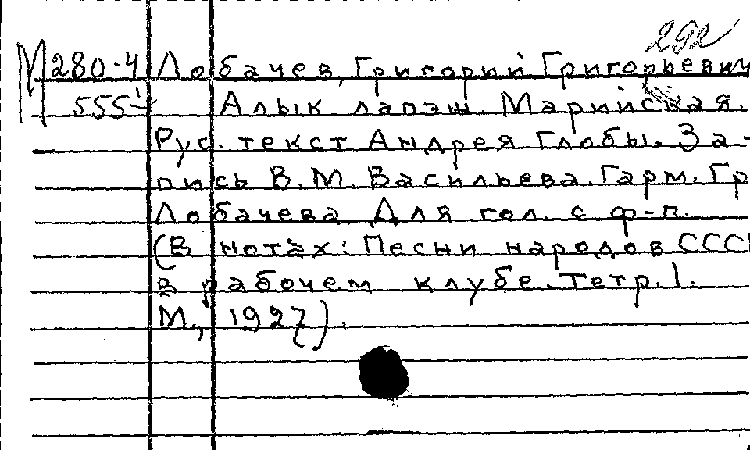 292
М 280-4 Лобачев, Григорий Григорьевич
555 Алык лапэш. Марийская.
Рус. текст Андрея Глобы. За-
пись В.М. Васильева. Гарм. Гр.
Лобачева Для гол. с ф-п.
(В нотах: Песни народов СССР
в рабочем клубе. Тетр. 1.
М., 1927).